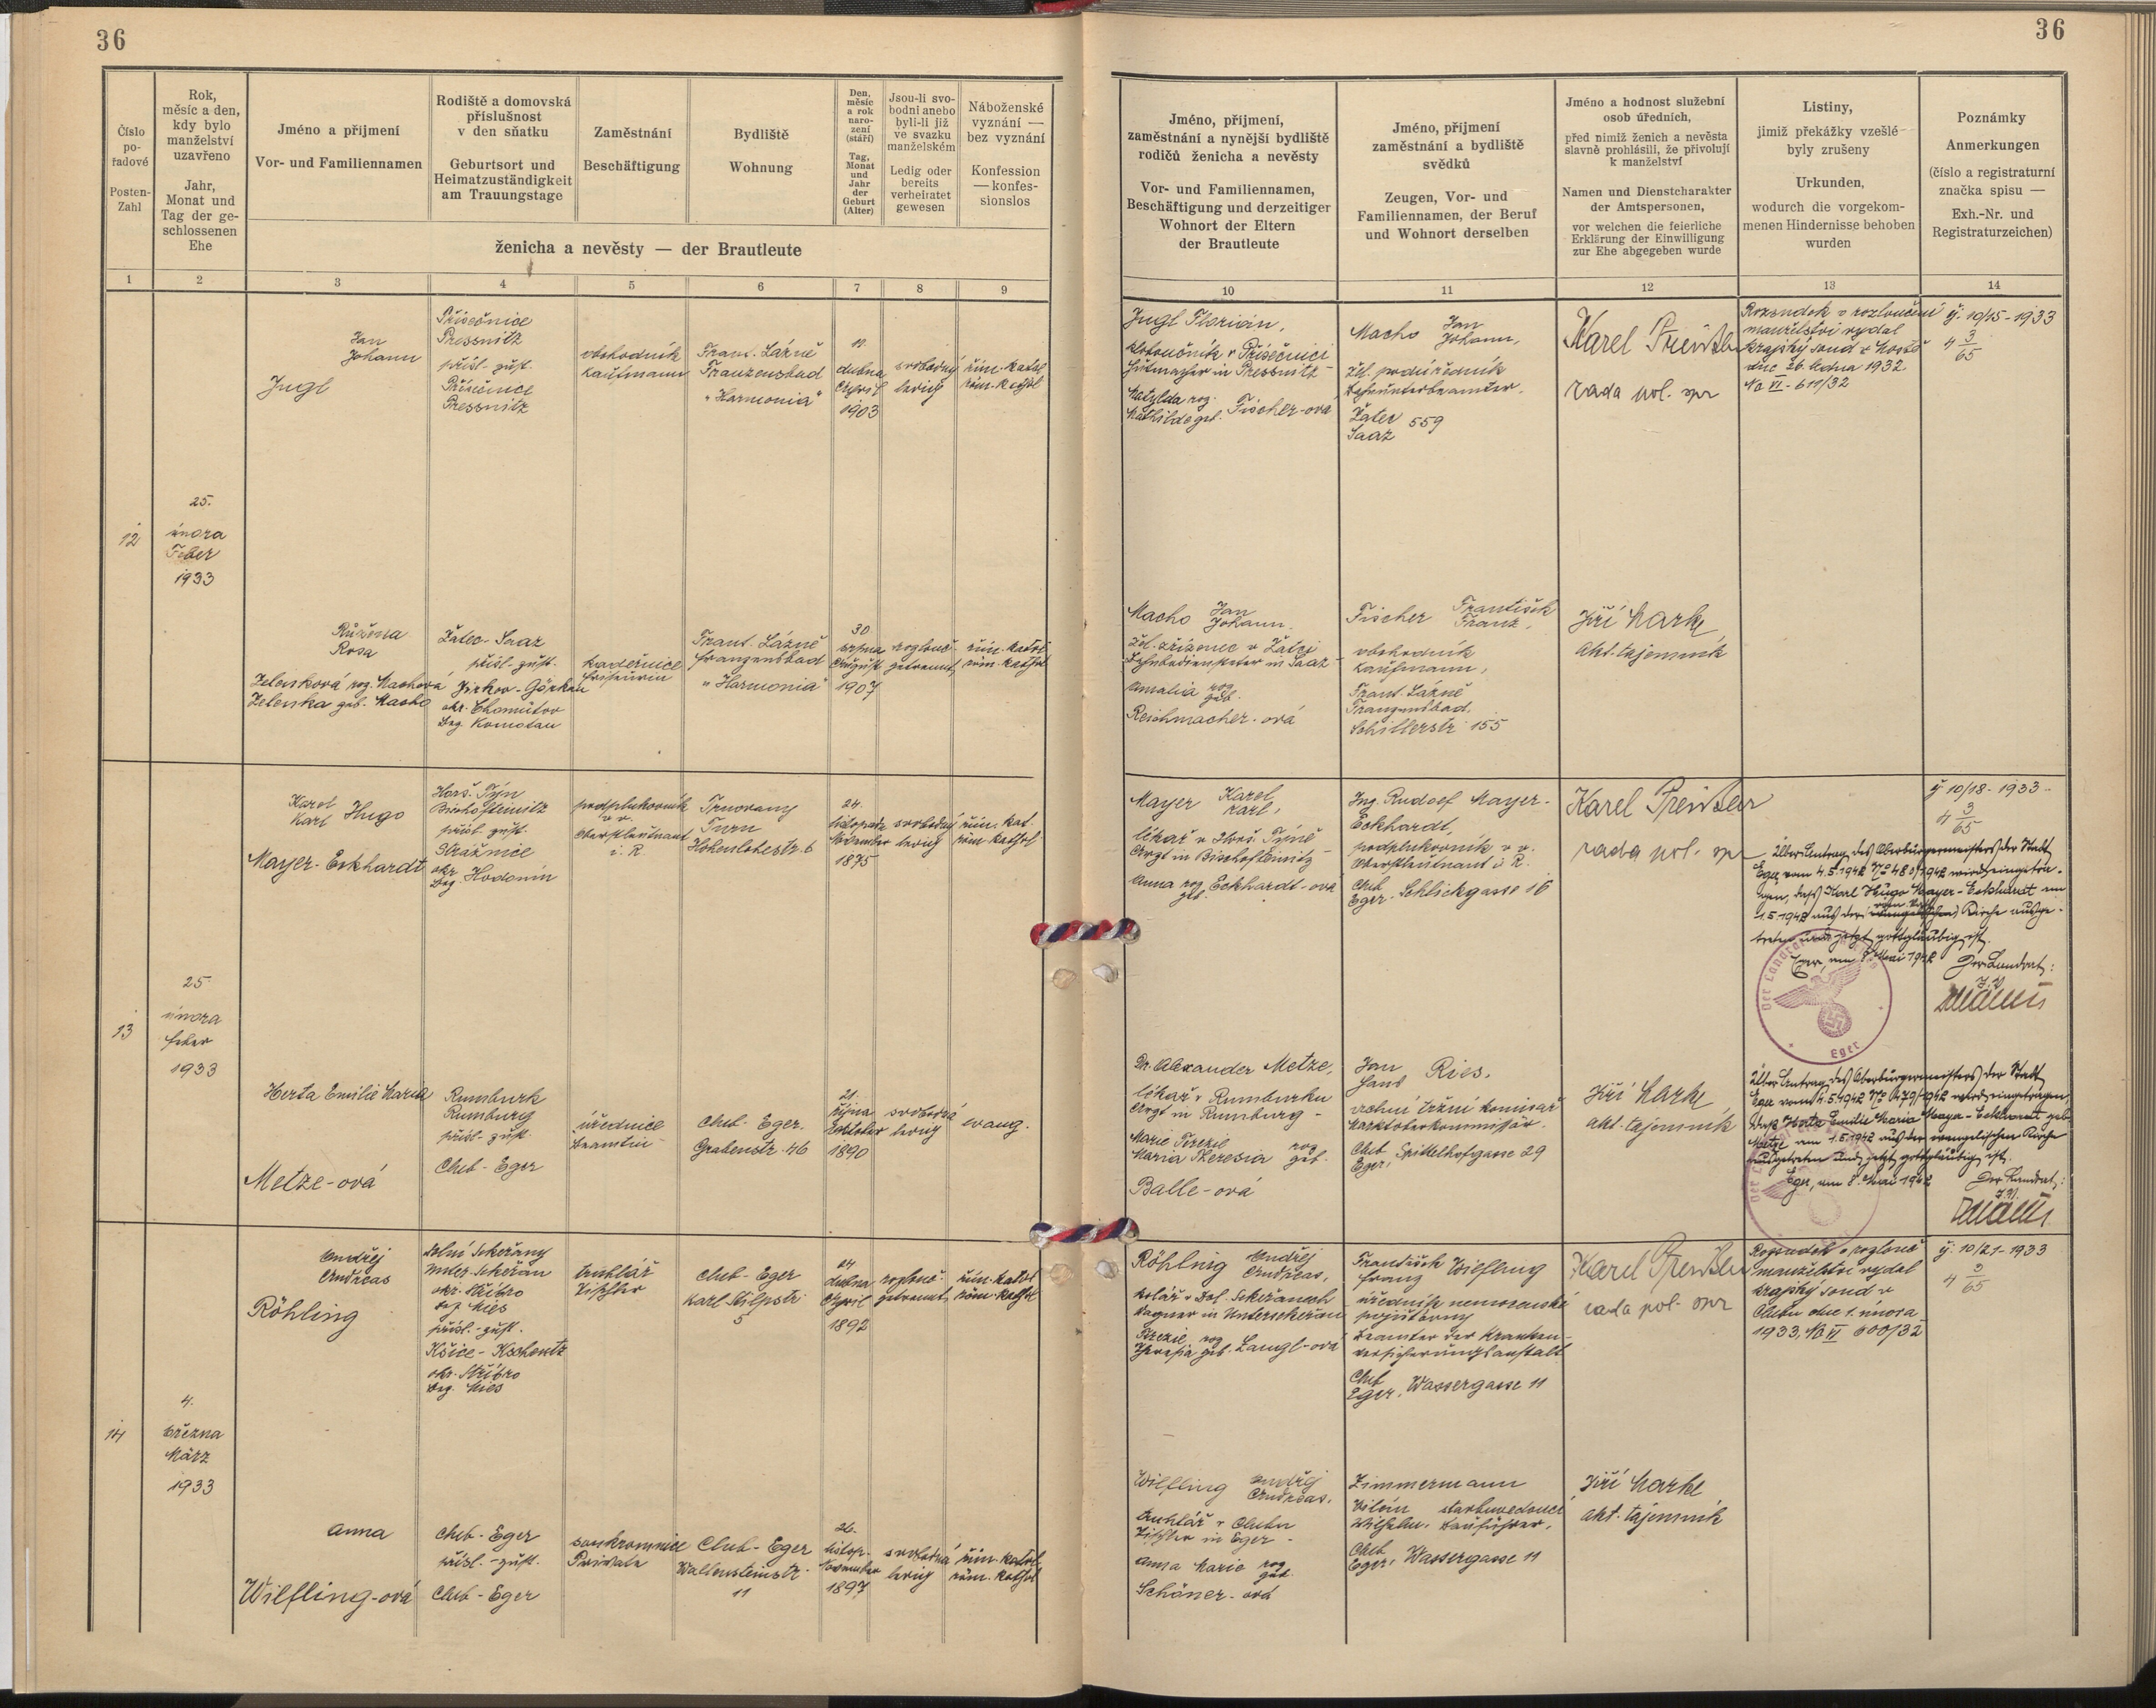 36
36
Číslo
po-
řadové
Posten-
Zahl
Rok,
měsíc a den,
kdy bylo
manželství
uzavřeno
Jahr,
Monat und
Tag der ge-
schlossenen
Ehe
Jméno a příjmení
Vor- und Familiennamen
Rodiště a domovská
příslušnost
v den sňatku
Geburtsort und
Heimatzuständigkeit
am Trauungstage
Zaměstnání
Beschäftigung
Bydliště
Wohnung
Den,
měsíc
a rok
naro-
zení
(stáří)
Tag,
Monat
und
Jahr
der
Geburt
(Alter)
Jsou-li svo-
bodni anebo
byli-li již
ve svazku
manželském
Ledig oder
bereits
verheiratet
gewesen
Náboženské
vyznání —
bez vyznání
Konfession
— konfes-
sionslos
ženicha a nevěsty — der Brautleute
1
2
3
4
5
6
7
8
9
Jméno, příjmení,
zaměstnání a nynější bydliště
rodičů ženicha a nevěsty
Vor- und Familiennamen,
Beschäftigung und derzeitiger
Wohnort der Eltern
der Brautleute
Jméno, příjmení
zaměstnání a bydliště
svědků
Zeugen, Vor- und
Familiennamen, der Beruf
und Wohnort derselben
Jméno a hodnost služební
osob úředních,
před nimiž ženich a nevěsta
slavně prohlásili, že přivolují
k manželství
Namen und Dienstcharakter
der Amtspersonen,
vor welchen die feierliche
Erklärung der Einwilligung
zur Ehe abgegeben wurde
Listiny,
jimiž překážky vzešlé
byly zrušeny
Urkunden,
wodurch die vorgekom-
menen Hindernisse behoben
wurden
Poznámky
Anmerkungen
(číslo a registraturní
značka spisu —
Exh.-Nr. und
Registraturzeichen)
10
11
12
13
14
12
25.
února
Feber
1933
Jan
Johann
Jugl
Přísečnice
Pressnitz
přísl.-zust.
Přísečnice
Pressnitz
obchodník
Kaufmann
Frant. Lázně
Franzensbad
"Harmonia"
11.
dubna
April
1903
svobodný
ledig
řím.-katol
röm.-kathol
Jugl Florian,
kloboučník v Přísečnici
Hutmacher in Pressnitz -
Matylda roz.
Mathilde geb. Fischer-ová
Macho Jan
Johann,
žel. podúředník
Bahnunterbeamter.
Žatec 559
Saaz
Karel Preissler
rada pol. spr
Rozsudek o rozloučení
manželství vydal
krajský soud v Mostě
dne 26. ledna 1932
No VI - 611/32
č. 10/15-1933
4 3/65
Růžena
Rosa
Zelenková roz. Machová
Zelenka geb. Macho
Žatec-Saaz
přísl-zust.
Jirkov-Görkau
okr. Chomutov
Bez. Komotau
kadeřnice
Friseurin
Frant. Lázně
Franzensbad
"Harmonia"
30
srpna
August
1907
rozlouč-
getrennt
řím.-katol
röm.-kathol
Macho Jan
Johann.
žel. zřízenec v Žatci
Bahnbediensteter in Saaz
Amalia roz
geb.
Reichmacher-ová
Fischer František
Franz,
obchodník
Kaufmann,
Frant. Lázně
Franzensbad,
Schillerstr 155
Jiří Marke
akt. tajemník
13
25
února
Feber
1933
Karel
Karl Hugo
Mayer-Eckhardt
Horš. Týn
Bischofteinitz
přísl.-zust.
Strážnice
okr.
Bez. Hodonín
podplukovník
v. v.
Oberstleutnant
i. R.
Trnovany
Turn
Hohenlohestr. 6
24.
listopadu
November
1875
svobodný
ledig
řím.-kat.
röm-kathol
Mayer Karel
Karl,
lékař v Horš. Týně -
Arzt in Bischofteinitz -
Anna roz
geb. Eckhardt-ová
Ing. Rudolf Mayer-
Eckhardt,
podplukovník v v.
Oberstleutnant i. R.
Cheb
Eger, Schlickgasse 16
Karel Preissler
rada pol. spr
č 10/18-1933-
4 3/65
Über Antrag des Oberbürgermeisters der Stadt
Eger vom 4.5.1942 No 480/1942 wird eingetra-
gen, daß Karl Hugo Mayer-Eckhardt am
1.5.1942 aus der röm. kath. Kirche ausge-
treten und jetzt gottgläubig ist.
Eger, am 8. Mai 1942 Der Landrat:
Der Landrat
Eger
Herta Emilie Maria
Metze-ová
Rumburk
Rumburg
přísl-zust
Cheb-Eger
úřednice
Beamtin
Cheb-Eger.
Grabenstr. 46
21.
října
Oktober
1890
svobodná
ledig
evang.
Dr. Alexander Metze,
lékař v Rumburku
Arzt in Rumburg -
Marie Terezie roz
Maria Theresia geb.
Balle-ová
Jan
Hans Ries.
vrchní tržní komisař
Marktoberkommissär.
Cheb
Eger, Spittelhofgasse 29
Jiří Marke
akt. tajemník
Über Antrag des Oberbürgermeisters der Stadt
Eger vom 4.5.1942 No 479/1942 wird eingetragen,
daß Herta Emilie Maria Mayer-Eckhardt geb.
Metze am 1.5.1942 aus der evangelischen Kirche
ausgetreten und jetzt gottgläubig ist.
Eger, am 8. Mai 1942 Der Landrat:
14
4.
března
März
1933
Ondřej
Andreas
Röhling
Dolní Sekeřany
Unter-Sekeřan
okr. Stříbro
Bez. Mies
přísl.-zust.
Kšice-Kschentz
okr. Stříbro
Bez. Mies
truhlář
Tischler
Cheb-Eger
Karl Hilpstr
5
04
dubna
April
1892
rozlouč-
getrennt
řím.-katol
röm-kathol
Röhling Ondřej
Andreas,
kolář v Dol. Sekeřanech
Wagner in Untersekeřan
Terezie roz
Theresia geb. Langl-ová
František
Franz Wilfling
úředník nemocenské
pojišťovny
Beamter der Kranken-
versicherungsanstalt
Cheb
Eger, Wassergasse 11
Karel Preissler
rada pol. spr
Rozsudek o rozlouč
manželství vydal
krajský soud v
Chebu dne 1. února
1933, No VI 600/32
č. 10/21-1933
4 3/65
Anna
Wilfling-ová
Cheb-Eger
přísl.-zust.
Cheb-Eger
soukromnice
Private
Cheb-Eger
Wallensteinstr.
11
26.
listop.
November
1897
svobodná
ledig
řím.-katol
röm.-kathol
Wilfling Ondřej
Andreas.
truhlář v Chebu
Tischler in Eger -
Anna Marie roz
geb.
Schöner-ová
Zimmermann
Vilém stavbyvedoucí
Wilhelm, Bauführer,
Cheb
Eger, Wassergasse 11
Jiří Marke
akt. tajemník